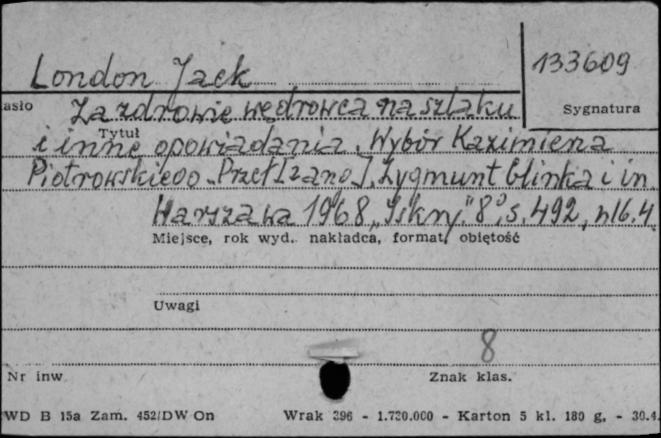 London Jack
133609
asło
Za zdrowie wędrowca na szlaku
Sygnatura
Tytuł
i inne opowiadania. Wybór Kazimierza
Piotrowskiego. Przeł[zano]. Zygmunt Glinka i in.
Warszawa 1968 „Iskry” 8°, s. 492, nlb. 4.
Miejsce, rok wyd., nakładca, format, objętość
Uwagi
8
Nr inw.
Znak klas.
WD B 15a Zam. 452/DW On Wrak 396 - 1.720.000 - Karton 5 kl. 180 g. - 30.4.